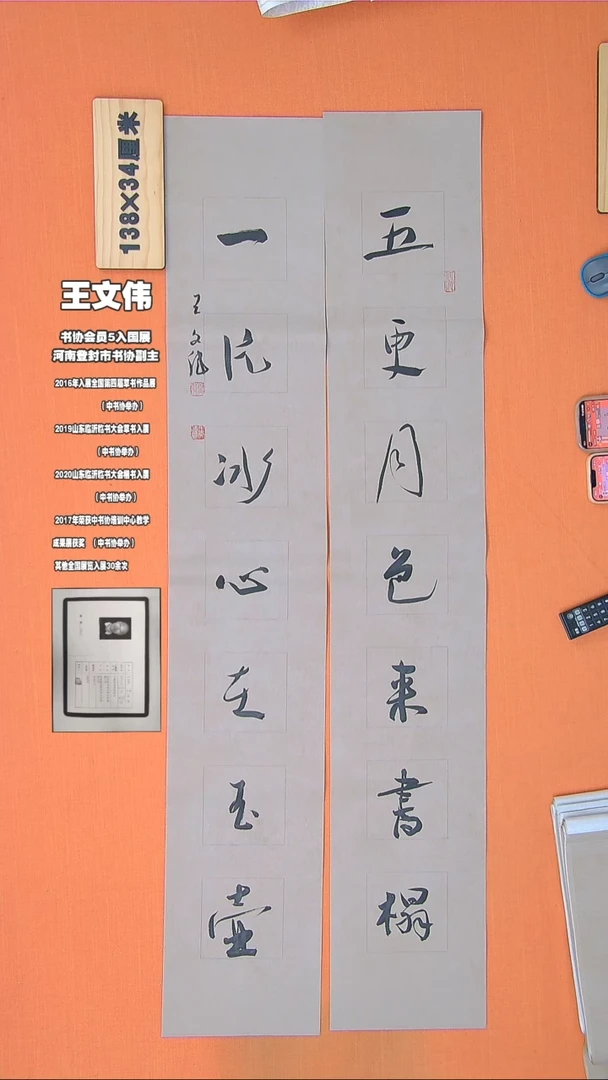 138×34厘米
五更月色来书榻
一片冰心在玉壶
王文伟
王文伟
书协会员5入国展
河南登封市书协副主
2016年入展全国第四届草书作品展
(中书协举办)
2019山东临沂临书大会草书入展
(中书协举办)
2020山东临沂临书大会楷书入展
(中书协举办)
2017年荣获中书协培训中心教学
成果展获奖 (中书协举办)
其他全国展览入展30余次